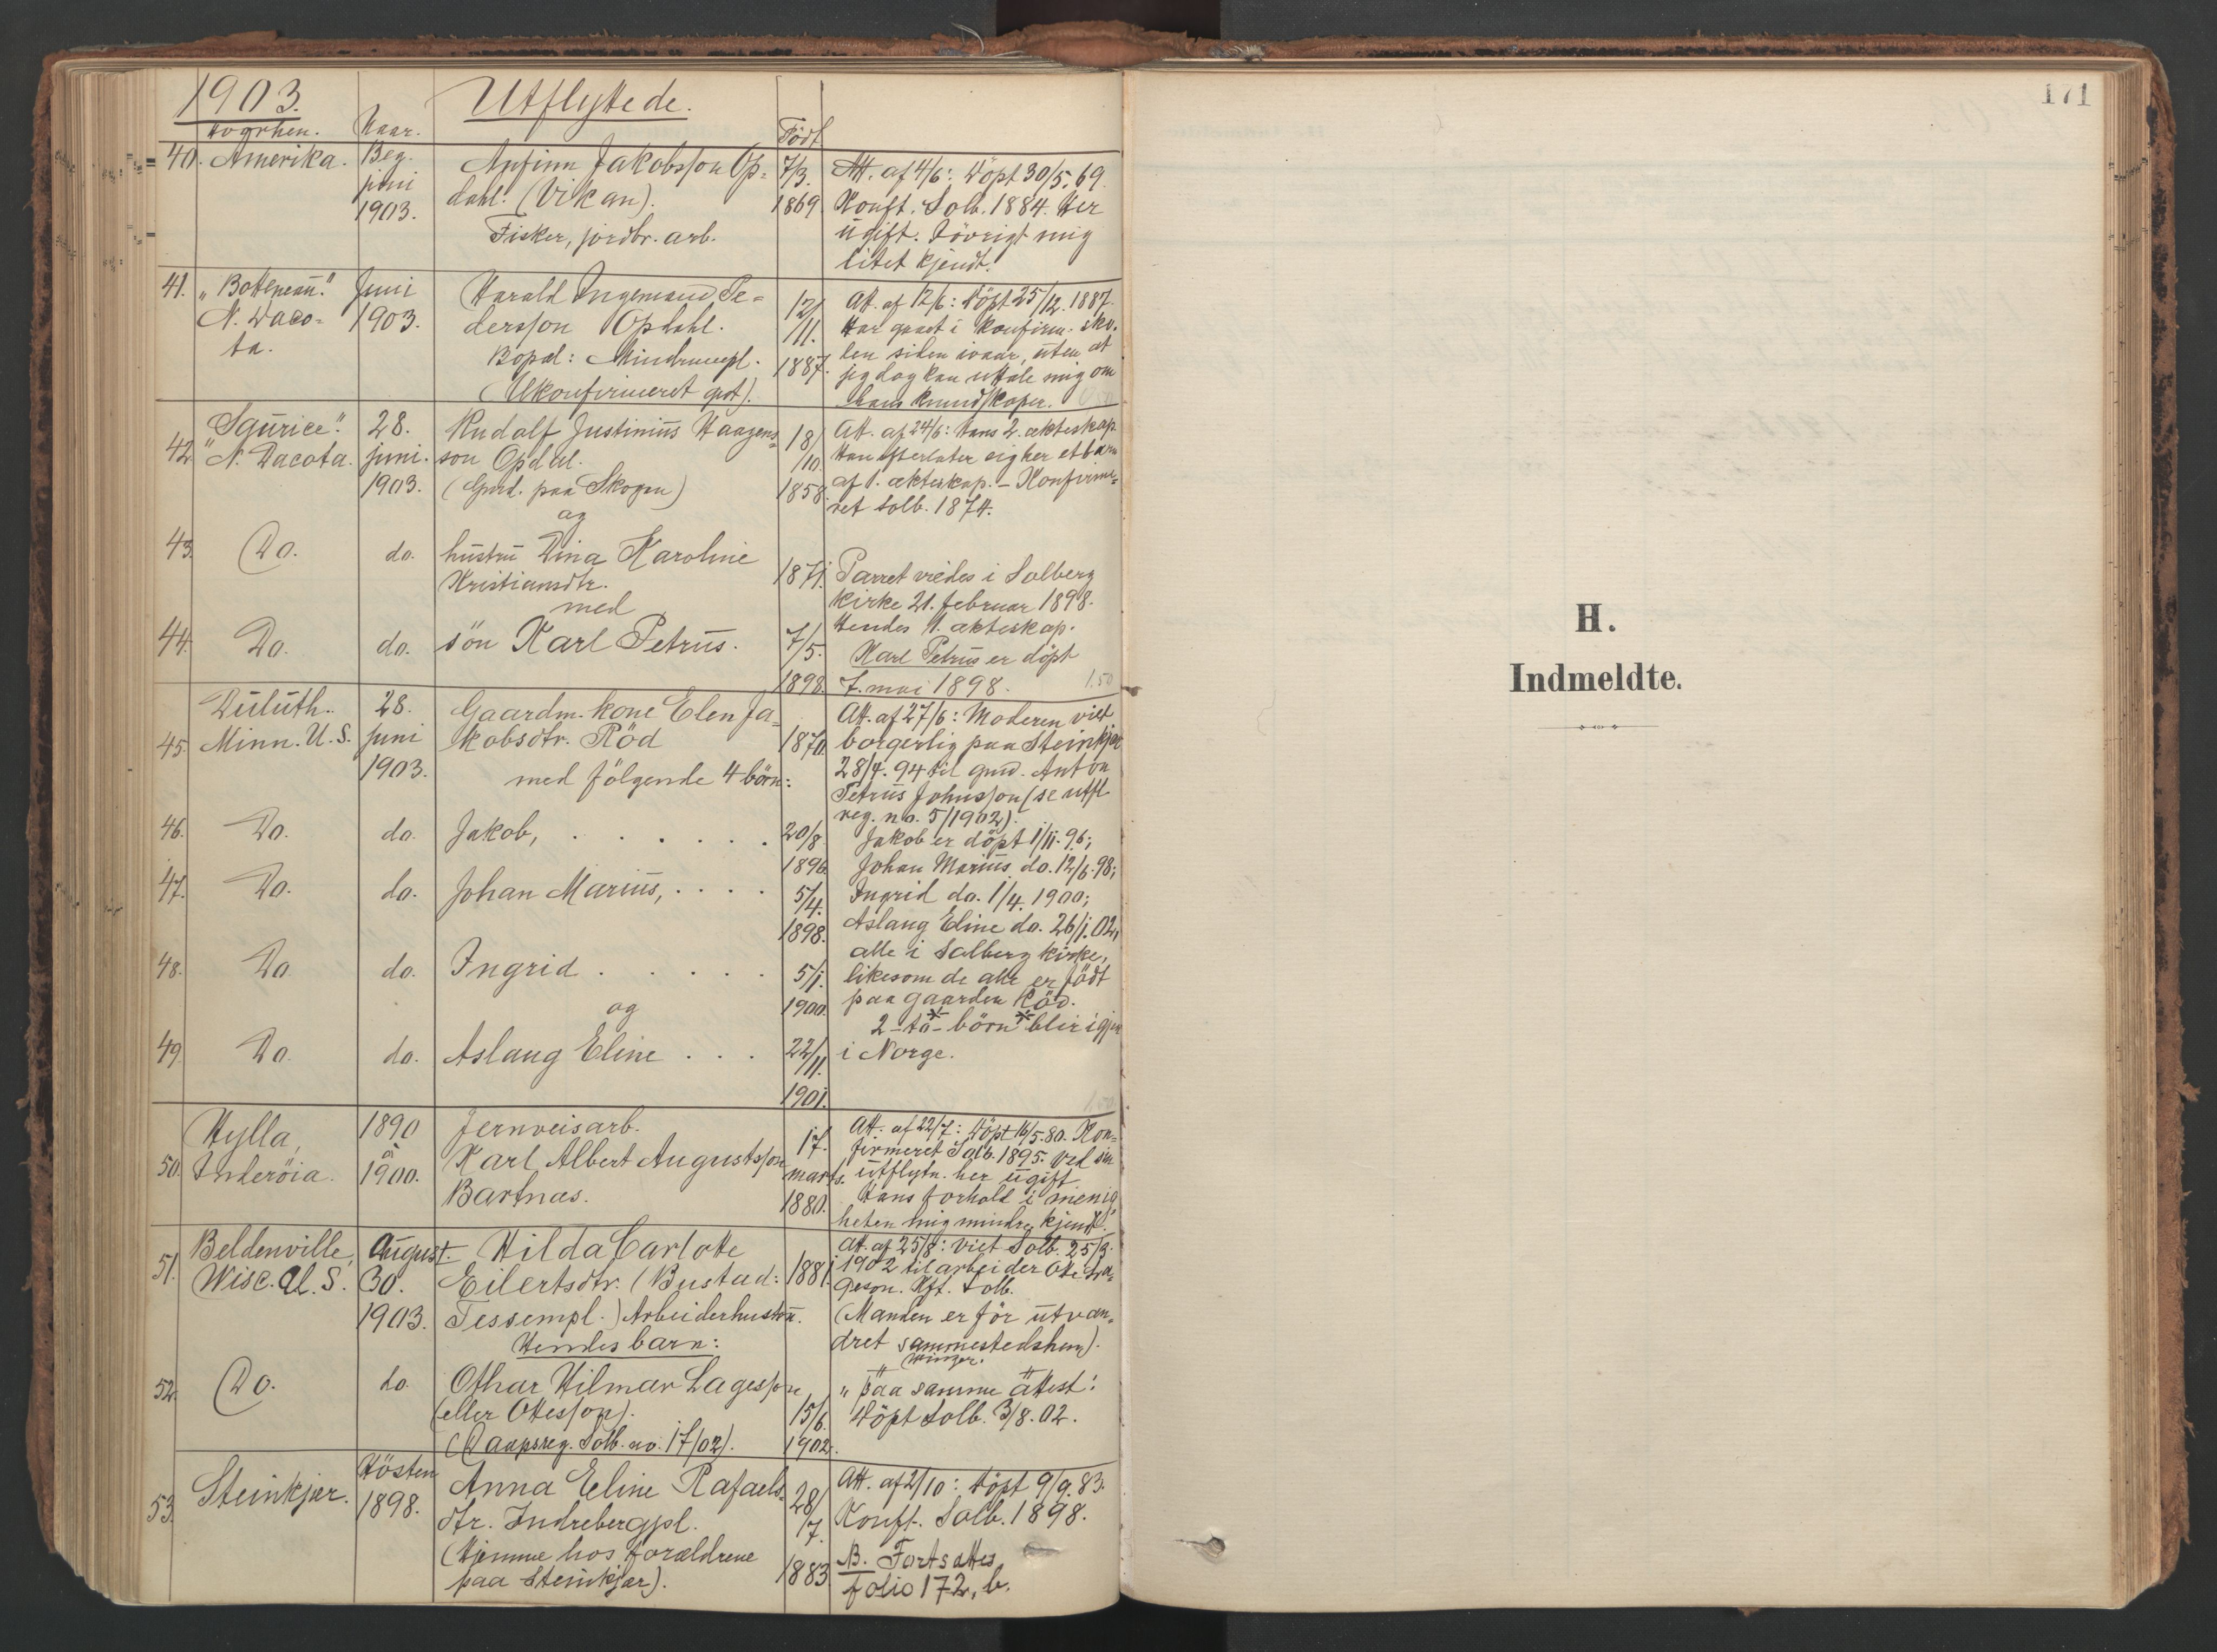 1903. Utflyttede.
Hvorhen. Naar. Född
40. Amerika. Beg. juni 1903.
Arnfinn Jakobsson Op-
dahl. (Vikan).
Fisker, jordbr. arb.
7/3. 1869.
Att. af 4/6: Döpt 30/5. 69.
Konft. Solb. 1884. Her
ugift. Iövrigt mig
litet kjendt.
41. "Bottineau." N. Daco-
ta.
Juni 1903.
Harald Ingemand Pe-
dersson Opdahl.
Bopæl:
(Ukonfirmeret gut).
12/11. 1887.
Att. af 12/6: Döpt 25/12. 1887.
Har gaaet i konfirm. sko-
len siden ivaar, uten at
jeg dog kan uttale mig om
hans kundskaper.
42. "Sourice." N. Dacota.
28. juni 1903.
Rudolf Justinius Haagens-
son Opdahl.
(Gmd. paa Skogen)
og
18/10 1858.
Att. af 24/6: Hans 2. ækteskap
Han efterlater sig her et barn
af 1. ækteskap. - Konfirme-
ret Solb. 1874.
43. Do. do.
hustru Dina Karoline
Kristiansdtr.
med
1871.
Parret viedes i Solberg
kirke 21. februar 1898.
Hendes 1. ækteskap.
44. Do. do.
sön Karl Petrus.
7/5. 1898.
Karl Petrus er döpt
7. mai 1898. 1.50
45. Duluth. Minn. U.S.
28. juni 1903.
Gaardm. kone Elen Ja-
kobsdtr. Röd
med fölgende 4 börn:
1870.
Att. af 27/6: Moderen viet
borgerlig paa Steinkjær
28/7. 94 til gmd. Anton
Petrus Johnsson (se utfl.
reg. no. 5/1902).
46. Do. do. Jakob, . . . . . . 20/8 1896.
Jakob er döpt 1/11. 96;
Johan Marius do. 12/6. 98;
47. Do. do. Johan Marius, . . . . 5/4. 1898.
Ingrid do. 1/4. 1900;
Aslaug Eline do. 26/1. 02,
alle i Salberg kirke,
48. Do. do. Ingrid . . . . . 5/1. 1900.
og
likesom de alle er född
paa gaarden Röd.
2 - to - börn blir igjen
49. Do. do. Aslaug Eline . . . 22/11. 1901.
i Norge.
50. Hylla, Inderöia.
1890 à 1900.
Jernveisarb.
Karl Albert Augustsson
Bartnæs.
17. marts. 1880.
Att. af 22/7: Döpt 16/5. 80. Kon-
firmeret Salb. 1895. Ved sin
utflytn. her ugift.
Hans forhold i menig-
heten mig mindre kjendt.
51. Beldenville, Wisc. U.S.
August 30. 1903.
Hilda Carlotte
Eilertsdtr. (Bustad:
Tessempl.) Arbeiderhustru.
Hendes barn:
1881.
Att. af 25/8: viet Solb. 25/3.
1902 til arbeider Otte La-
geson. Kft. Solb.
(Manden er för utvan-
dret sammestedshen).
52. Do. do.
Othar Hilmar Lagesson
(eller Ottesson).
(Daapsreg. Solb. no. 17/02).
15/6 1902.
" paa samme attest:
Döpt Solb. 3/8. 02.
53. Steinkjær.
Hösten 1898.
Anna Eline Rafaels-
dtr. Indrebergpl.
(Hjemme hos forældrene
paa Steinkjær).
28/7. 1883.
Att. af 2/10: Döpt 9/9. 83.
Konft. Salb. 1898.
NB. Fortsættes
folio 172, b.
171
H.
Indmeldte.